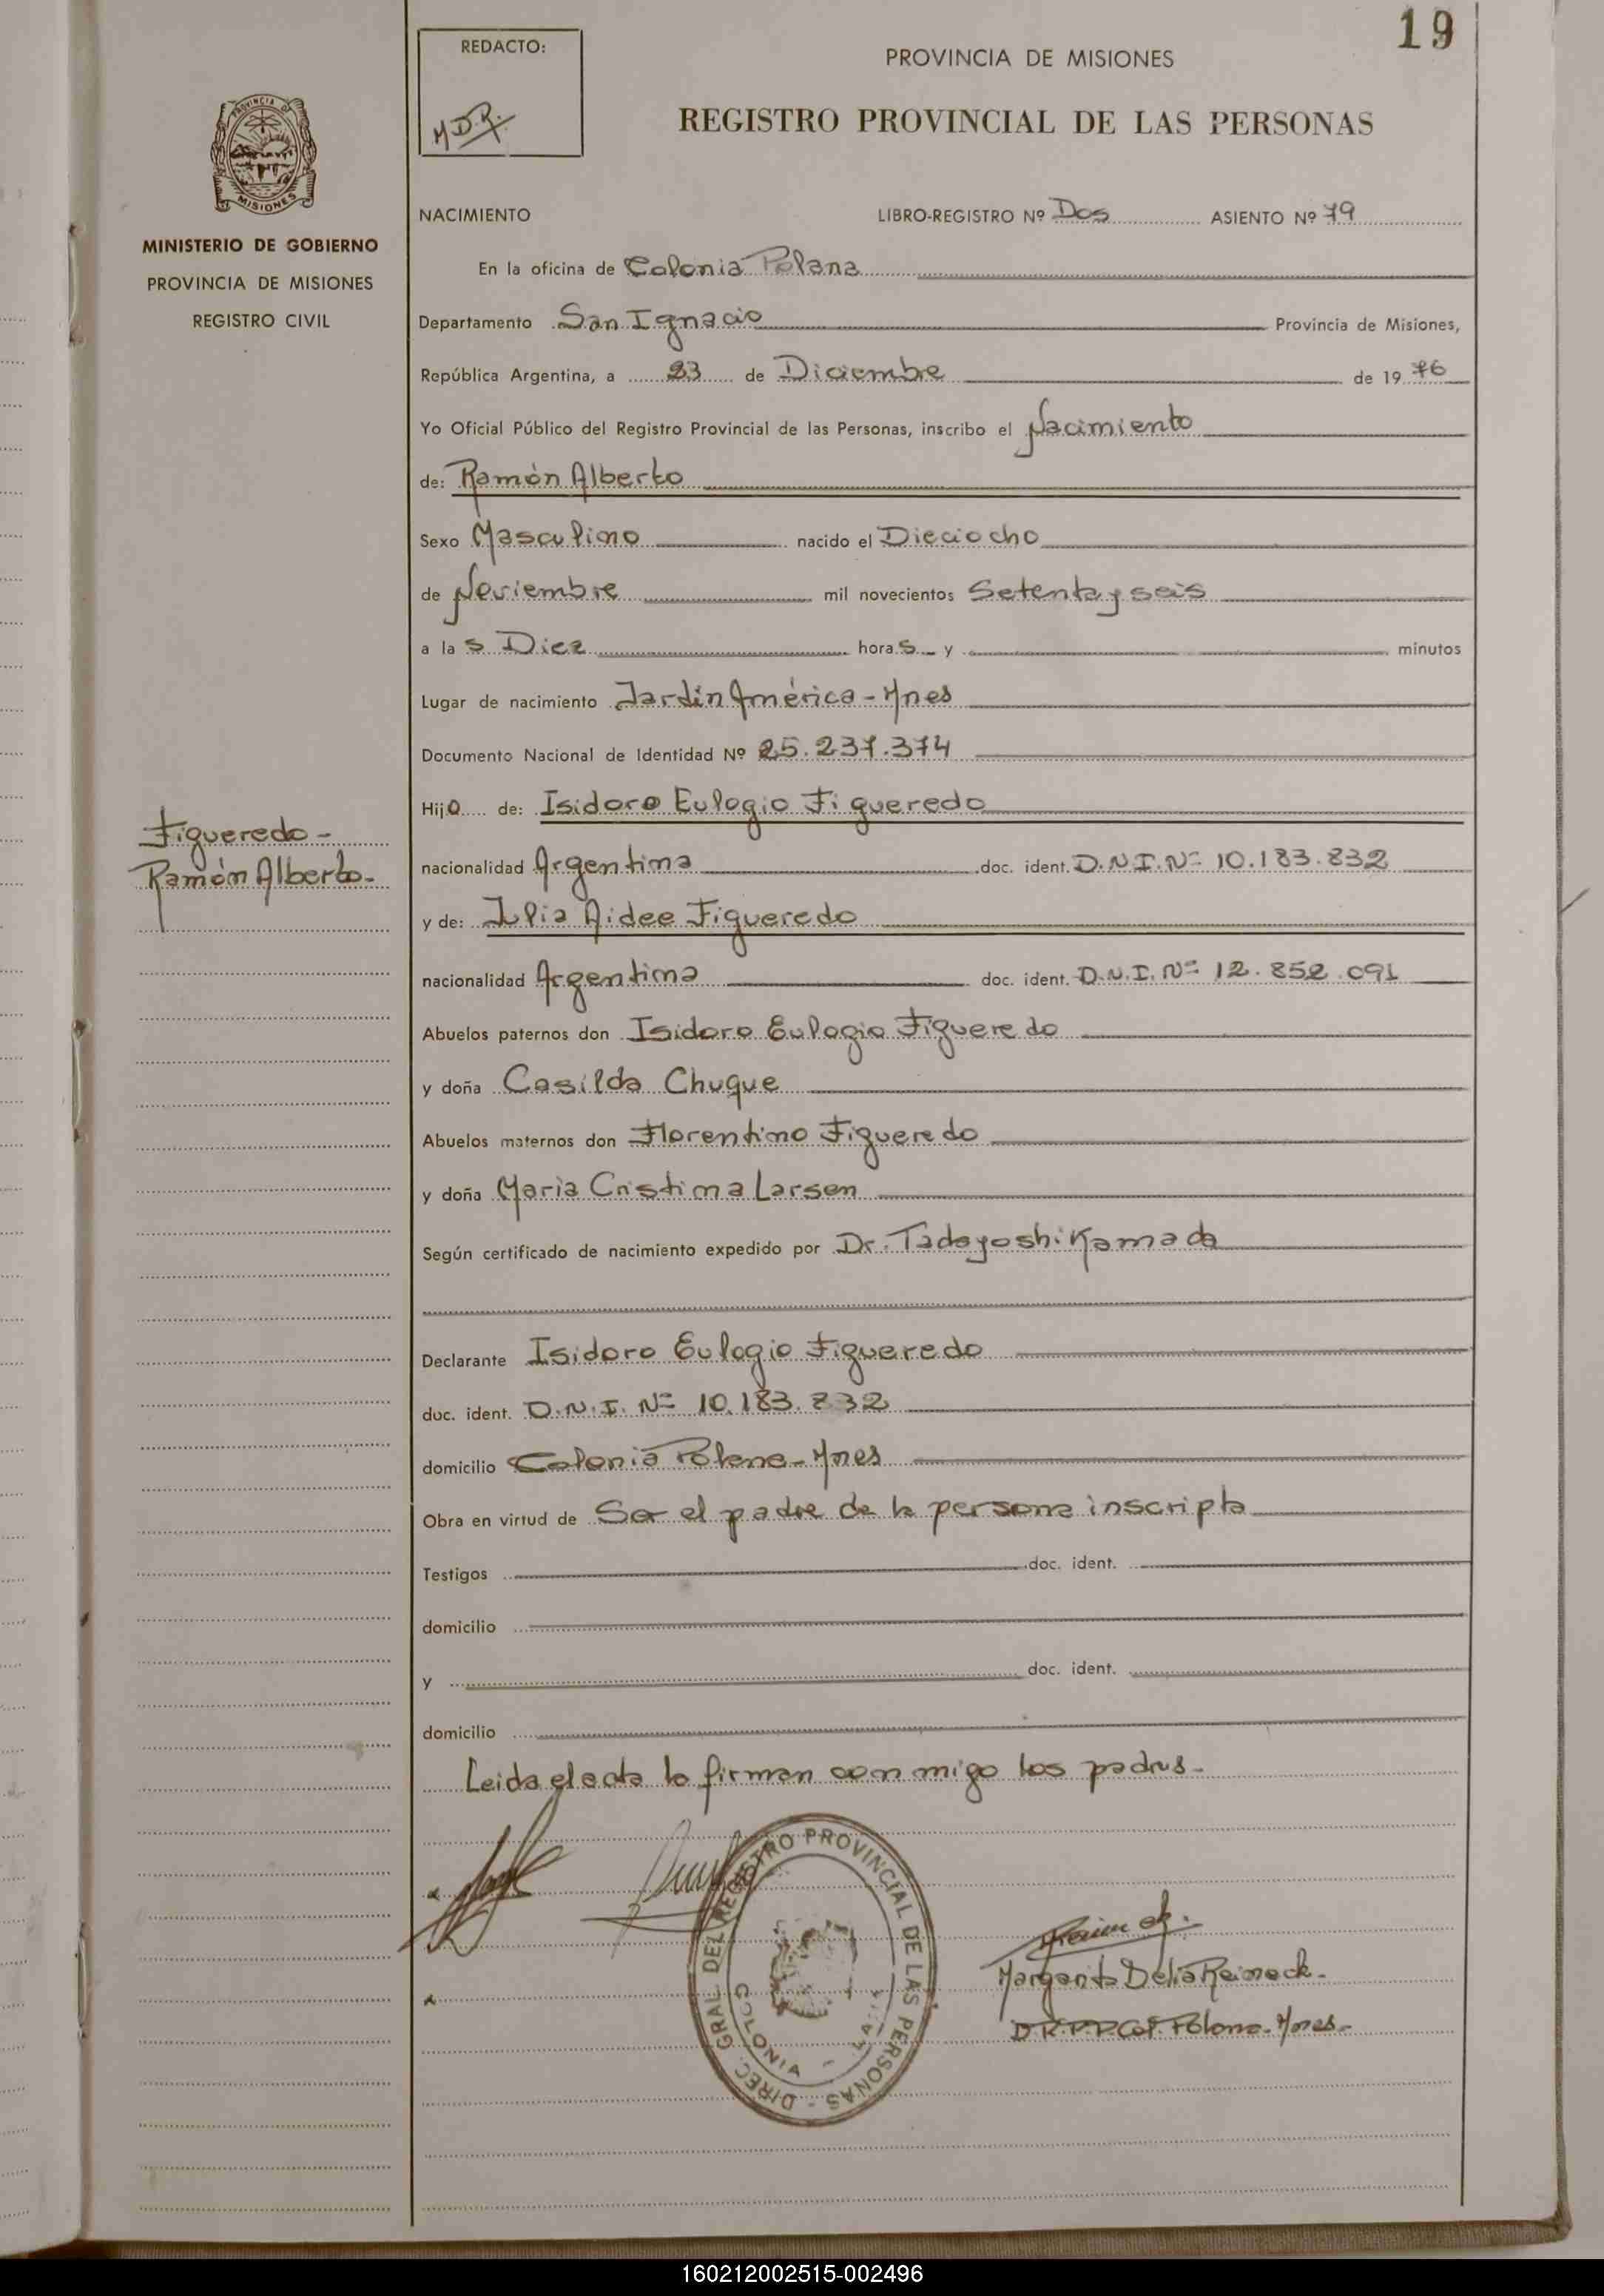 19
REDACTO:
M D.R.
PROVINCIA DE MISIONES
REGISTRO PROVINCIAL DE LAS PERSONAS
PROVINCIA DE
MISIONES
MINISTERIO DE GOBIERNO
PROVINCIA DE MISIONES
REGISTRO CIVIL
NACIMIENTO LIBRO-REGISTRO Nº Dos ASIENTO Nº 79
En la oficina de Colonia Polana
Departamento San Ignacio Provincia de Misiones,
República Argentina, a 23 de Diciembre de 19 76
Yo Oficial Público del Registro Provincial de las Personas, inscribo el Nacimiento
de: Ramón Alberto
Sexo Masculino nacido el Dieciocho
de Noviembre mil novecientos Setenta y seis
a la s Diez hora s y minutos
Lugar de nacimiento Jardín América - Mnes
Documento Nacional de Identidad Nº 25.237.374
Hijo de: Isidoro Eulogio Figueredo
Figueredo -
Ramón Alberto -
nacionalidad Argentina doc. ident. D.N.I. Nº 10.183.832
y de: Julia Aidee Figueredo
nacionalidad Argentina doc. ident. D.N.I. Nº 12.852.091
Abuelos paternos don Isidoro Eulogio Figueredo
y doña Casilda Chuque
Abuelos maternos don Florentino Figueredo
y doña María Cristina Larsen
Según certificado de nacimiento expedido por Dr. Tadayoshi Kamada
Declarante Isidoro Eulogio Figueredo
doc. ident. D.N.I. Nº 10.183.832
domicilio Colonia Polana - Mnes
Obra en virtud de Ser el padre de la persona inscripta
Testigos doc. ident.
domicilio
y doc. ident.
domicilio
Leida el acta la firman conmigo los padres -
DIREC. GRAL. DEL REGISTRO PROVINCIAL DE LAS PERSONAS -
COLONIA -
Margarita Delia Reineck -
D.R.P.P. Col. Polana - Mnes -
160212002515-002496